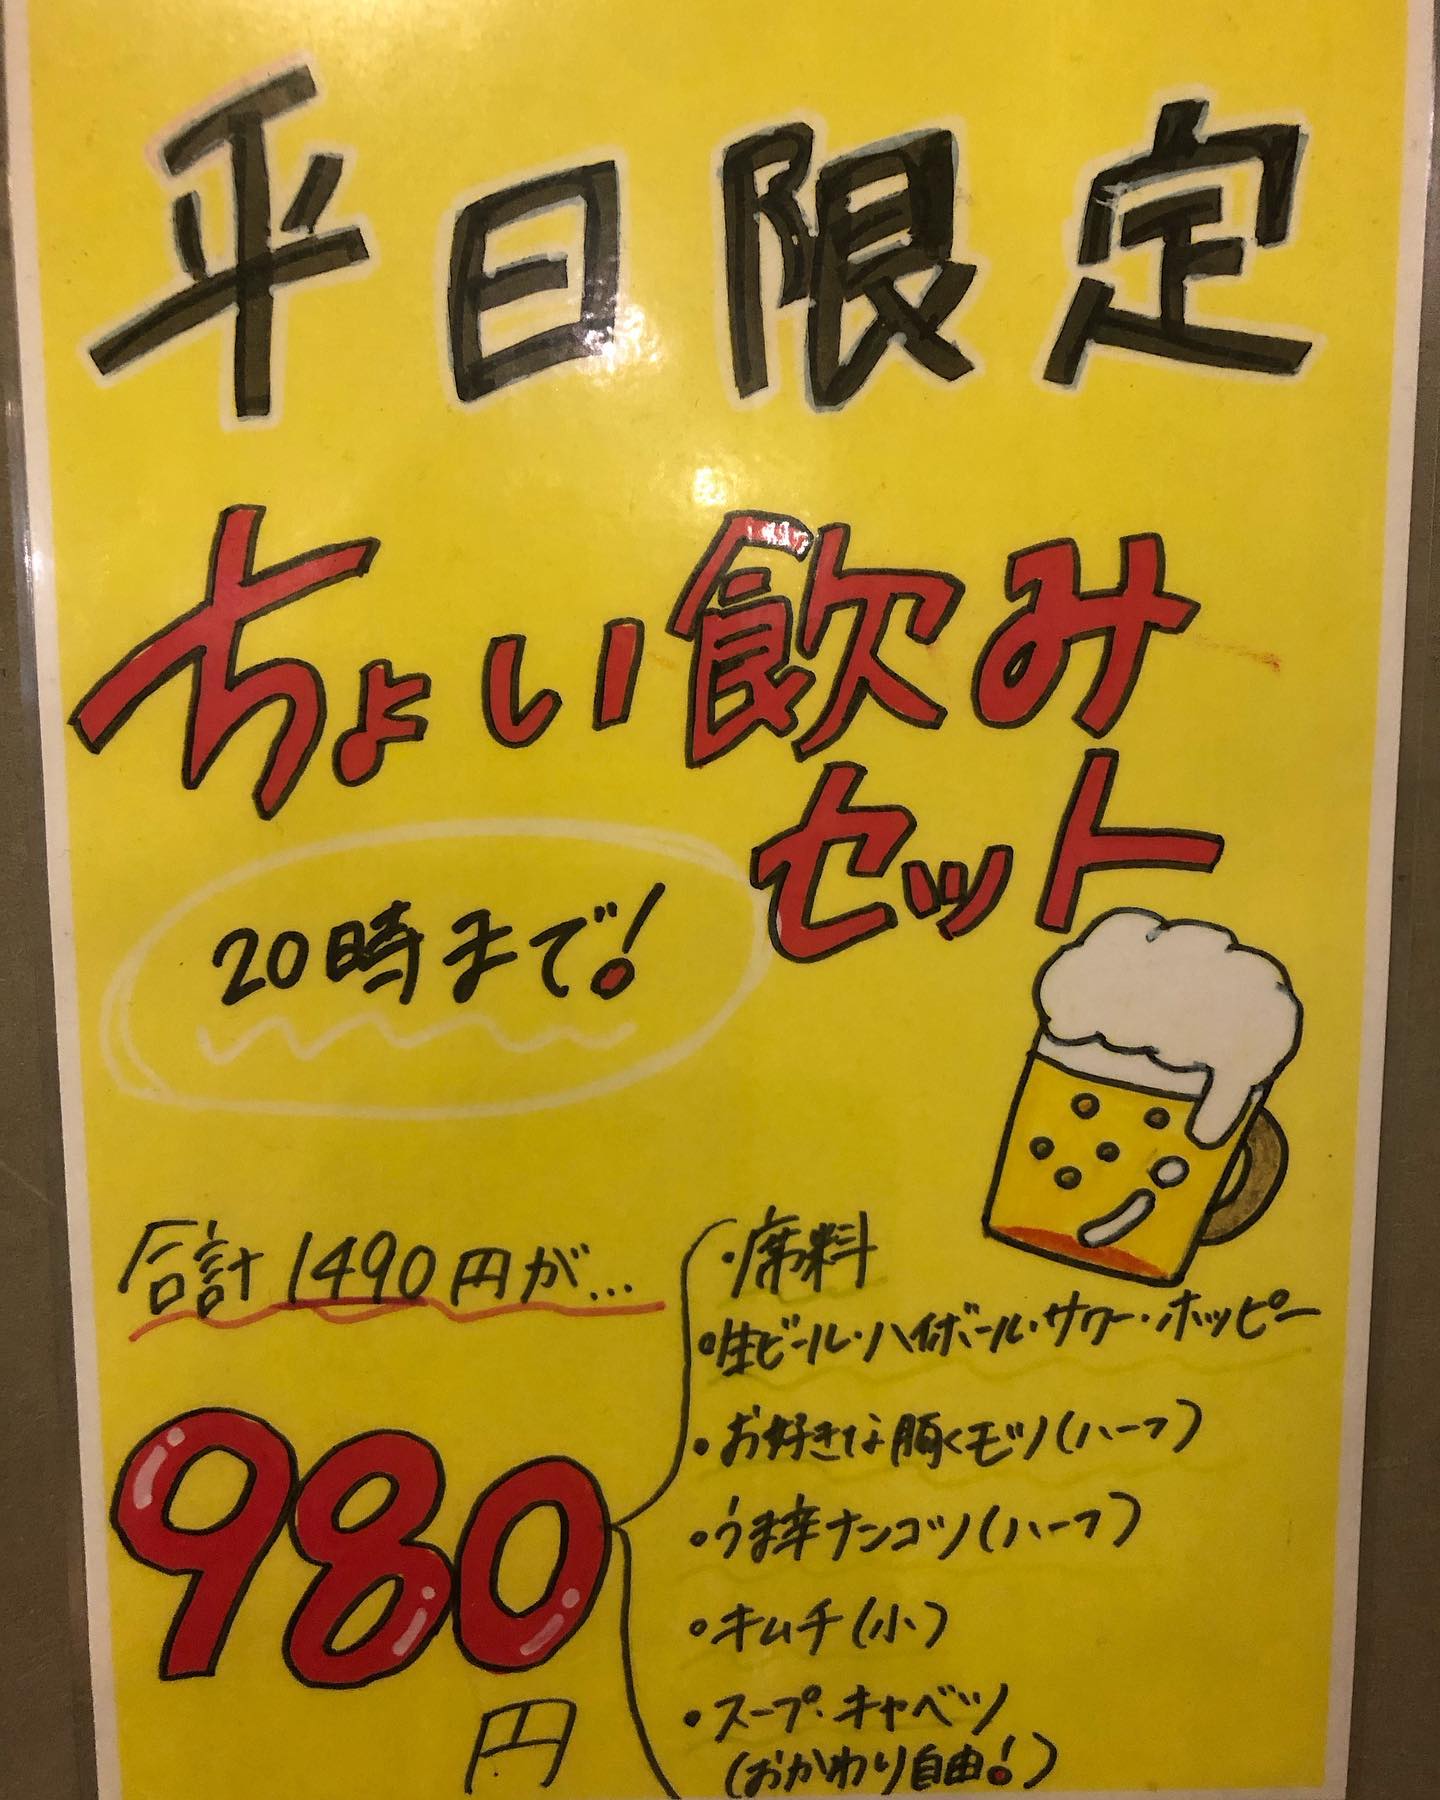 平日限定
ちょい飲み
セット
20時まで!
合計1490円が…
980
円
・席料
・生ビール・ハイボール・サワー・ホッピー
・お好きな豚くモツ(ハーフ)
・うま辛ナンコツ(ハーフ)
・キムチ(小)
・スープ・キャベツ
(おかわり自由!)